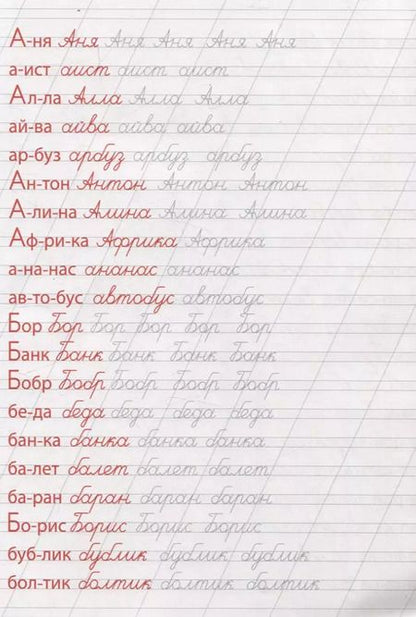 А-ня Аня Аня Аня Аня Аня
а-ист аист аист аист
Ал-ла Алла Алла Алла
ай-ва айва айва айва
ар-буз арбуз арбуз арбуз
Ан-тон Антон Антон Антон
А-ли-на Алина Алина Алина
Аф-ри-ка Африка Африка
а-на-нас ананас ананас
ав-то-бус автобус автобус
Бор Бор Бор Бор Бор Бор
Банк Банк Банк Банк Банк
Бобр Бобр Бобр Бобр Бобр
бе-да беда беда беда беда
бан-ка банка банка банка
ба-лет балет балет балет
ба-ран баран баран баран
Бо-рис Борис Борис Борис
буб-лик бублик бублик бублик
бол-тик болтик болтик болтик